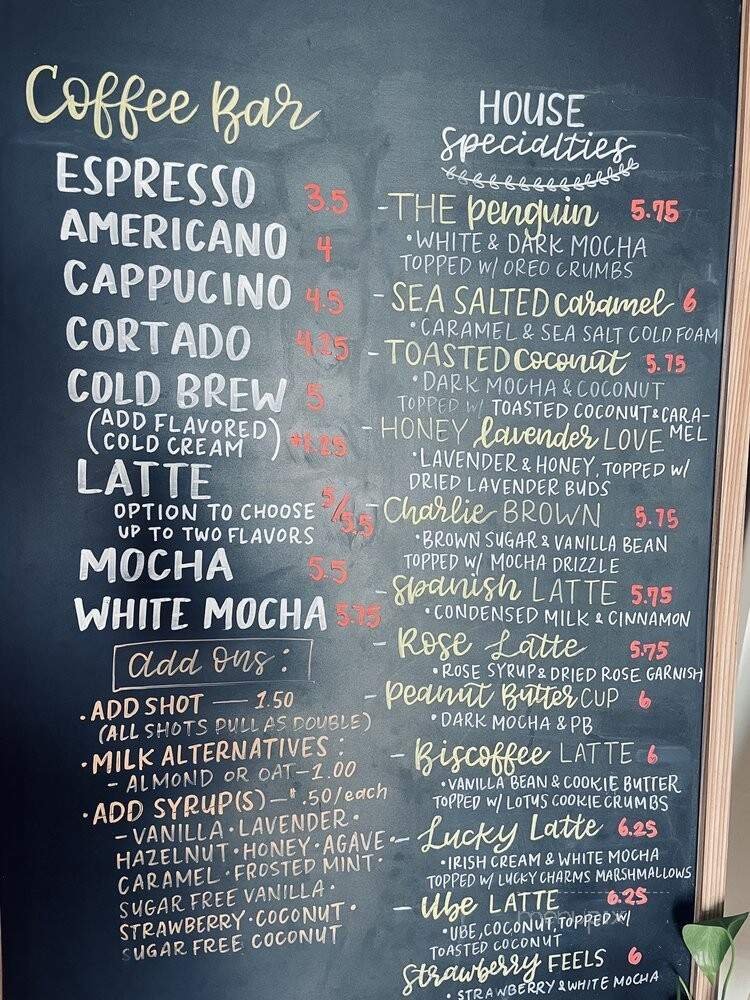 Coffee Bar
ESPRESSO 3.5
AMERICANO 4
CAPPUCINO 4.5
CORTADO 4.25
COLD BREW 5
(ADD FLAVORED
COLD CREAM) +1.25
LATTE
OPTION TO CHOOSE 5/5.5
UP TO TWO FLAVORS
MOCHA 5.5
WHITE MOCHA 5.75
add ons:
·ADD SHOT — 1.50
(ALL SHOTS PULL AS DOUBLE)
·MILK ALTERNATIVES:
- ALMOND OR OAT-1.00
·ADD SYRUP(S)-$.50/each
-VANILLA·LAVENDER·
HAZELNUT·HONEY·AGAVE·
CARAMEL·FROSTED MINT·
SUGAR FREE VANILLA·
STRAWBERRY·COCONUT·
SUGAR FREE COCONUT
HOUSE
Specialties
-THE penguin 5.75
·WHITE & DARK MOCHA
TOPPED W/ OREO CRUMBS
-SEA SALTED caramel 6
·CARAMEL & SEA SALT COLD FOAM
-TOASTED coconut 5.75
·DARK MOCHA & COCONUT
TOPPED W/ TOASTED COCONUT & CARA-
MEL
-HONEY lavender LOVE
·LAVENDER & HONEY, TOPPED W/
DRIED LAVENDER BUDS
-Charlie BROWN 5.75
·BROWN SUGAR & VANILLA BEAN
TOPPED W/ MOCHA DRIZZLE
-Spanish LATTE 5.75
·CONDENSED MILK & CINNAMON
-Rose Latte 5.75
·ROSE SYRUP & DRIED ROSE GARNISH
-Peanut Butter CUP 6
·DARK MOCHA & PB
-Biscoffee LATTE 6
·VANILLA BEAN & COOKIE BUTTER
TOPPED W/ LOTUS COOKIE CRUMBS
-Lucky Latte 6.25
·IRISH CREAM & WHITE MOCHA
TOPPED W/ LUCKY CHARMS MARSHMALLOWS
-Ube LATTE 6.25
·UBE, COCONUT, TOPPED W/
TOASTED COCONUT
Strawberry FEELS 6
·STRAWBERRY & WHITE MOCHA